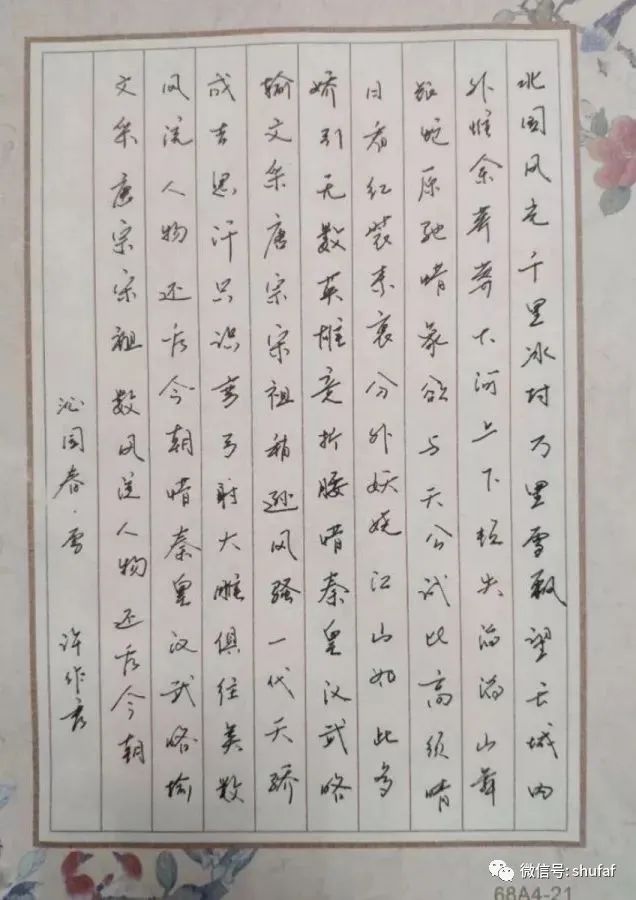 北国风光千里冰封万里雪飘望长城内
外惟余莽莽大河上下顿失滔滔山舞
银蛇原驰蜡象欲与天公试比高须晴
日看红装素裹分外妖娆江山如此多
娇引无数英雄竞折腰惜秦皇汉武略
输文采唐宗宋祖稍逊风骚一代天骄
成吉思汗只识弯弓射大雕俱往矣数
风流人物还看今朝惜秦皇汉武略输
文采唐宗宋祖数风流人物还看今朝
沁园春·雪 许作
微信号: shufaf
68A4-21